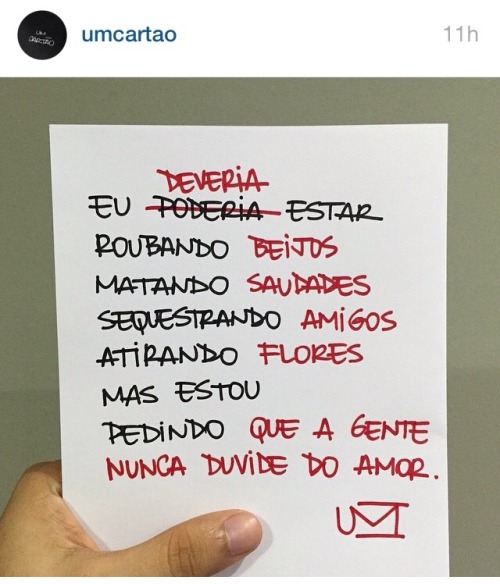 umcartao
11h
UM
CARTÃO
DEVERIA
EU PODERIA ESTAR
ROUBANDO BEIJOS
MATANDO SAUDADES
SEQUESTRANDO AMIGOS
ATIRANDO FLORES
MAS ESTOU
PEDINDO QUE A GENTE
NUNCA DUVIDE DO AMOR.
UM